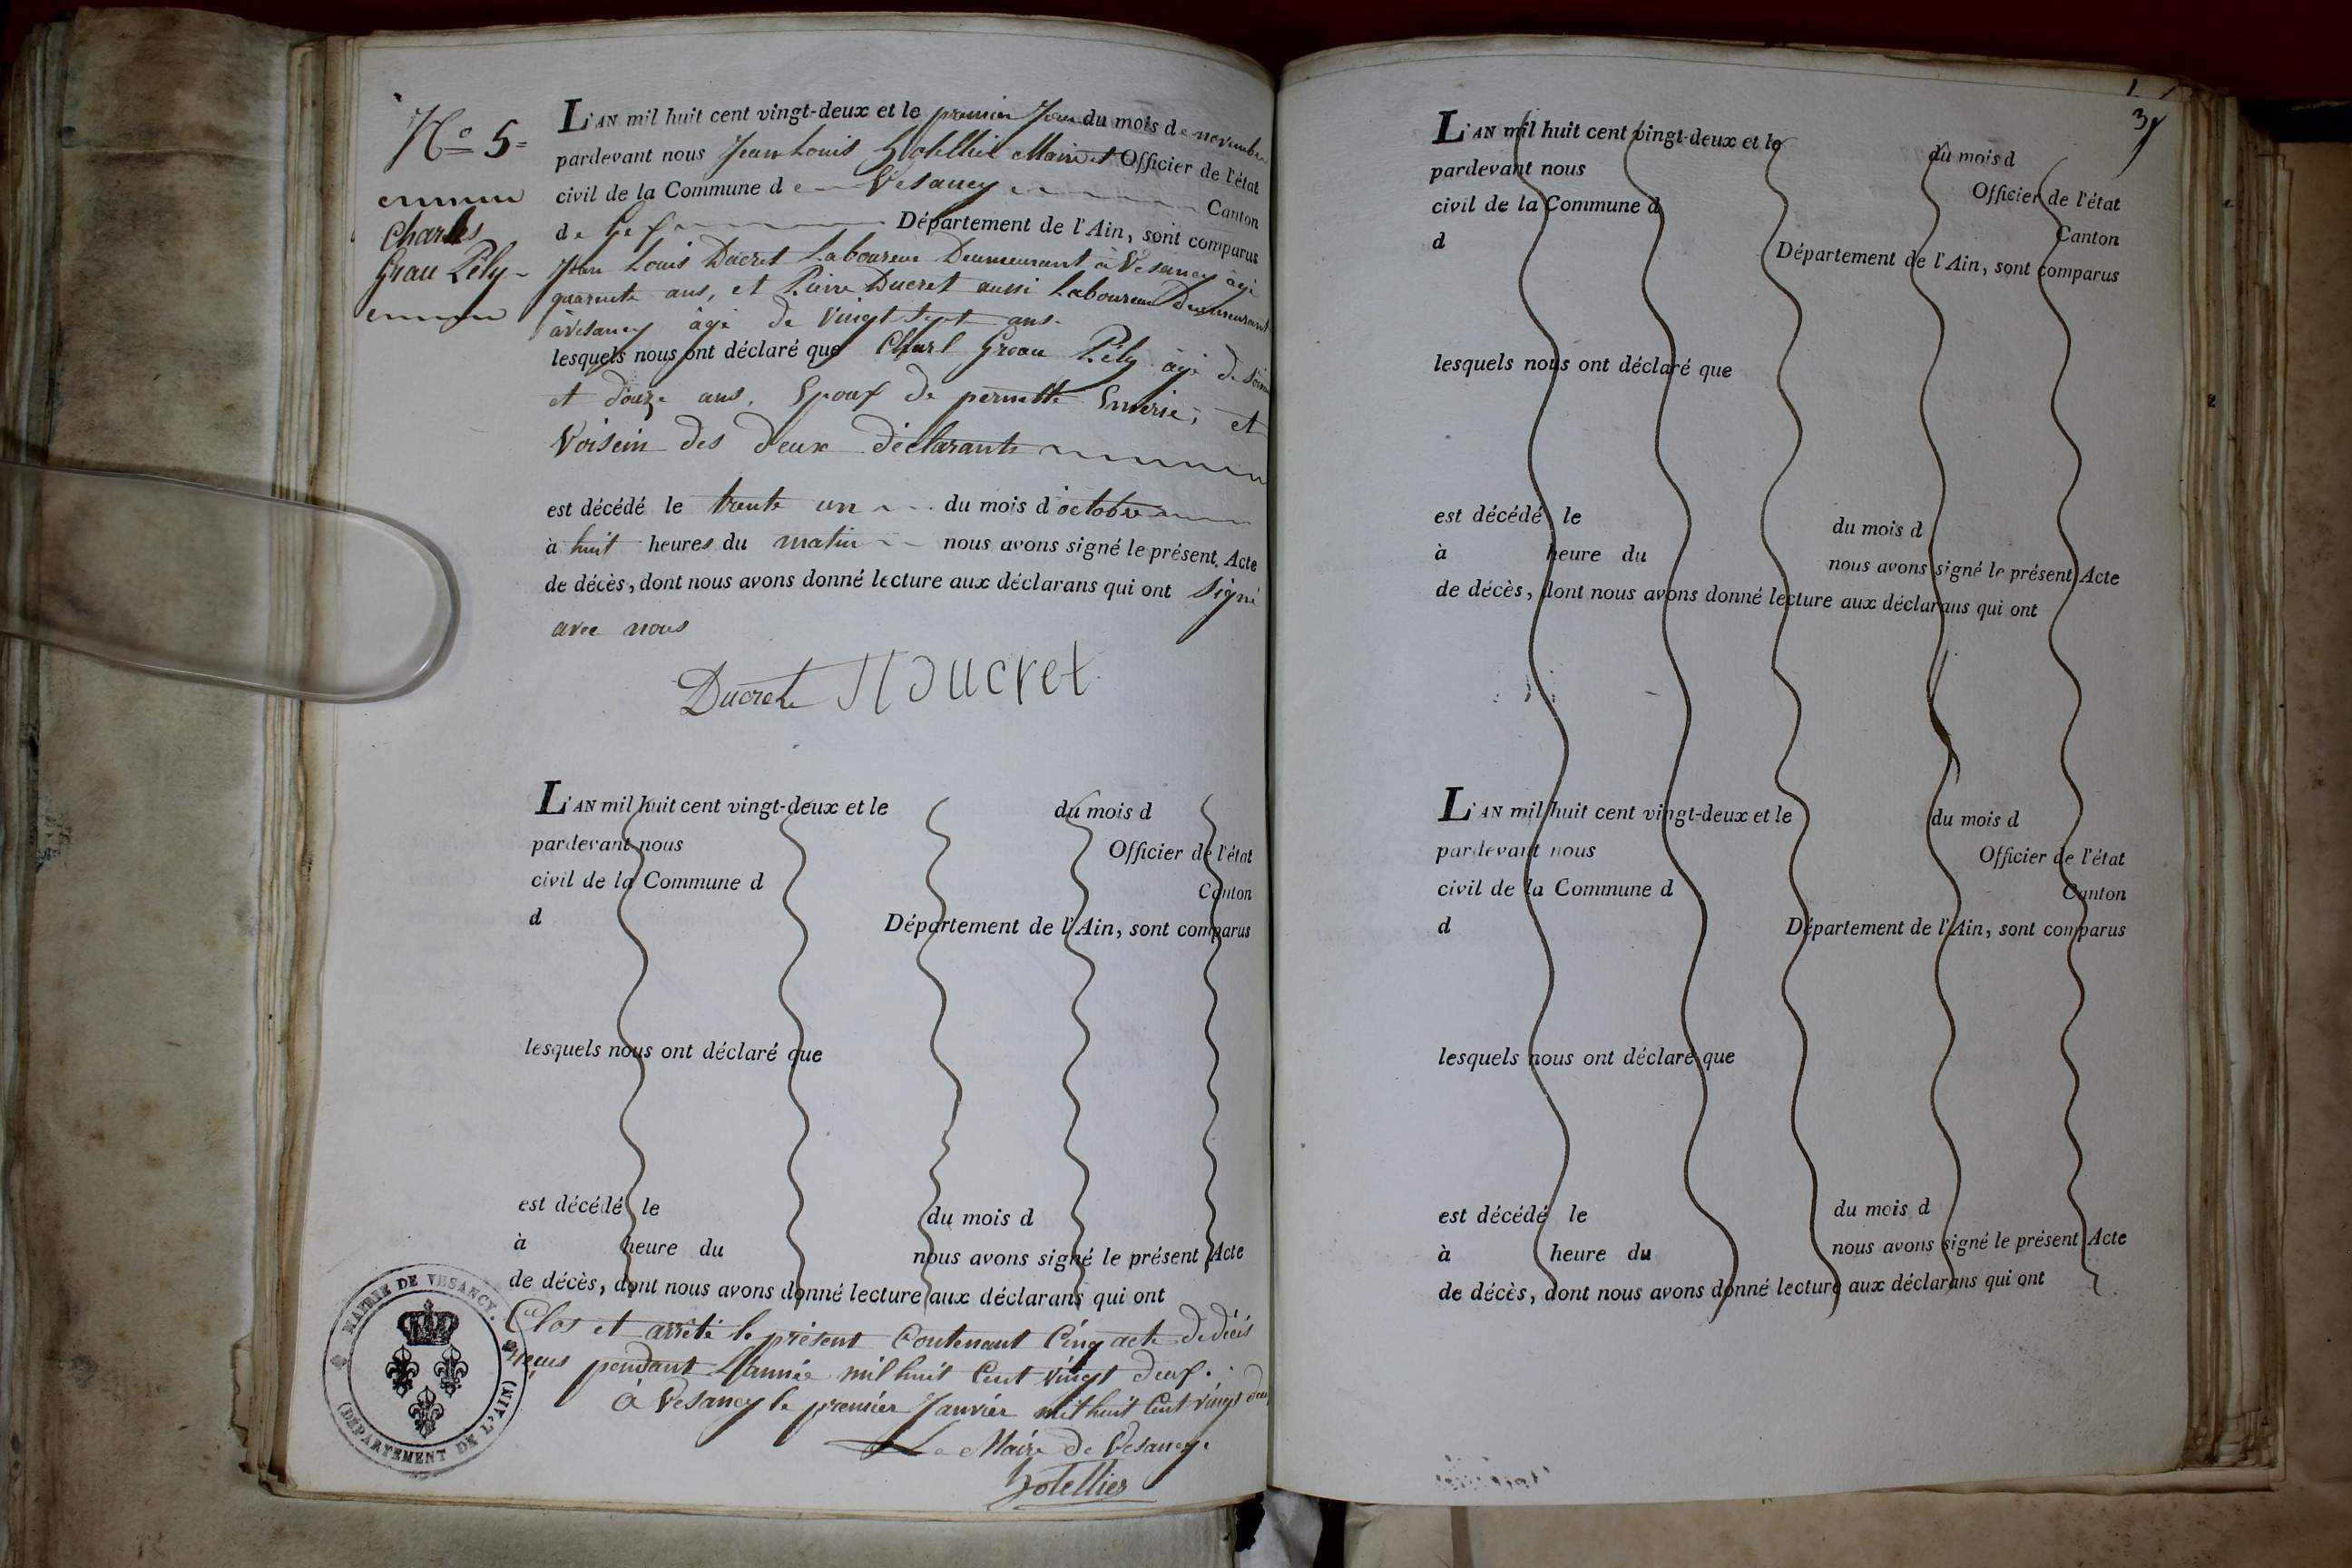 N.o 5=
Charles
Grau Pély
L'AN mil huit cent vingt-deux et le premier Jour du mois de novembre
pardevant nous Jean Louis hotellier Maire et Officier de l'état
civil de la Commune de Vesancy Canton
de Gex Département de l'Ain, sont comparus
Jean Louis Ducret Laboureur Deumeurant à Vesancy âgé
quarente ans, et Pierre Ducret aussi Laboureur Deumeurant
à Vesancy âgé de vingt sept ans.
lesquels nous ont déclaré que Charl Greau Pély âgé de
et douze ans, Epoux de pernette et
Voisein des deux déclarants
est décédé le trente un du mois d'octobre
à huit heures du matin nous avons signé le présent Acte
de décès, dont nous avons donné lecture aux déclarans qui ont signé
avec nous
Ducret Ducret
L'AN mil huit cent vingt-deux et le du mois d
pardevant nous Officier de l'état
civil de la Commune d Canton
d Département de l'Ain, sont comparus
lesquels nous ont déclaré que
est décédé le du mois d
à heure du nous avons signé le présent Acte
de décès, dont nous avons donné lecture aux déclarans qui ont
Clos et arrêté le présent Contenant Cinq acte de décès
reçus pendant l'année mil huit Cent vingt deux.
à Vesancy le premier Janvier mil huit Cent vingt deux
Le Maire de Vesancy.
hotellier
MAIRIE DE VESANCY.
(DÉPARTEMENT DE L'AIN)
3
L'AN mil huit cent vingt-deux et le du mois d
pardevant nous Officier de l'état
civil de la Commune d Canton
d Département de l'Ain, sont comparus
lesquels nous ont déclaré que
est décédé le du mois d
à heure du nous avons signé le présent Acte
de décès, dont nous avons donné lecture aux déclarans qui ont
L'AN mil huit cent vingt-deux et le du mois d
pardevant nous Officier de l'état
civil de la Commune d Canton
d Département de l'Ain, sont comparus
lesquels nous ont déclaré que
est décédé le du mois d
à heure du nous avons signé le présent Acte
de décès, dont nous avons donné lecture aux déclarans qui ont